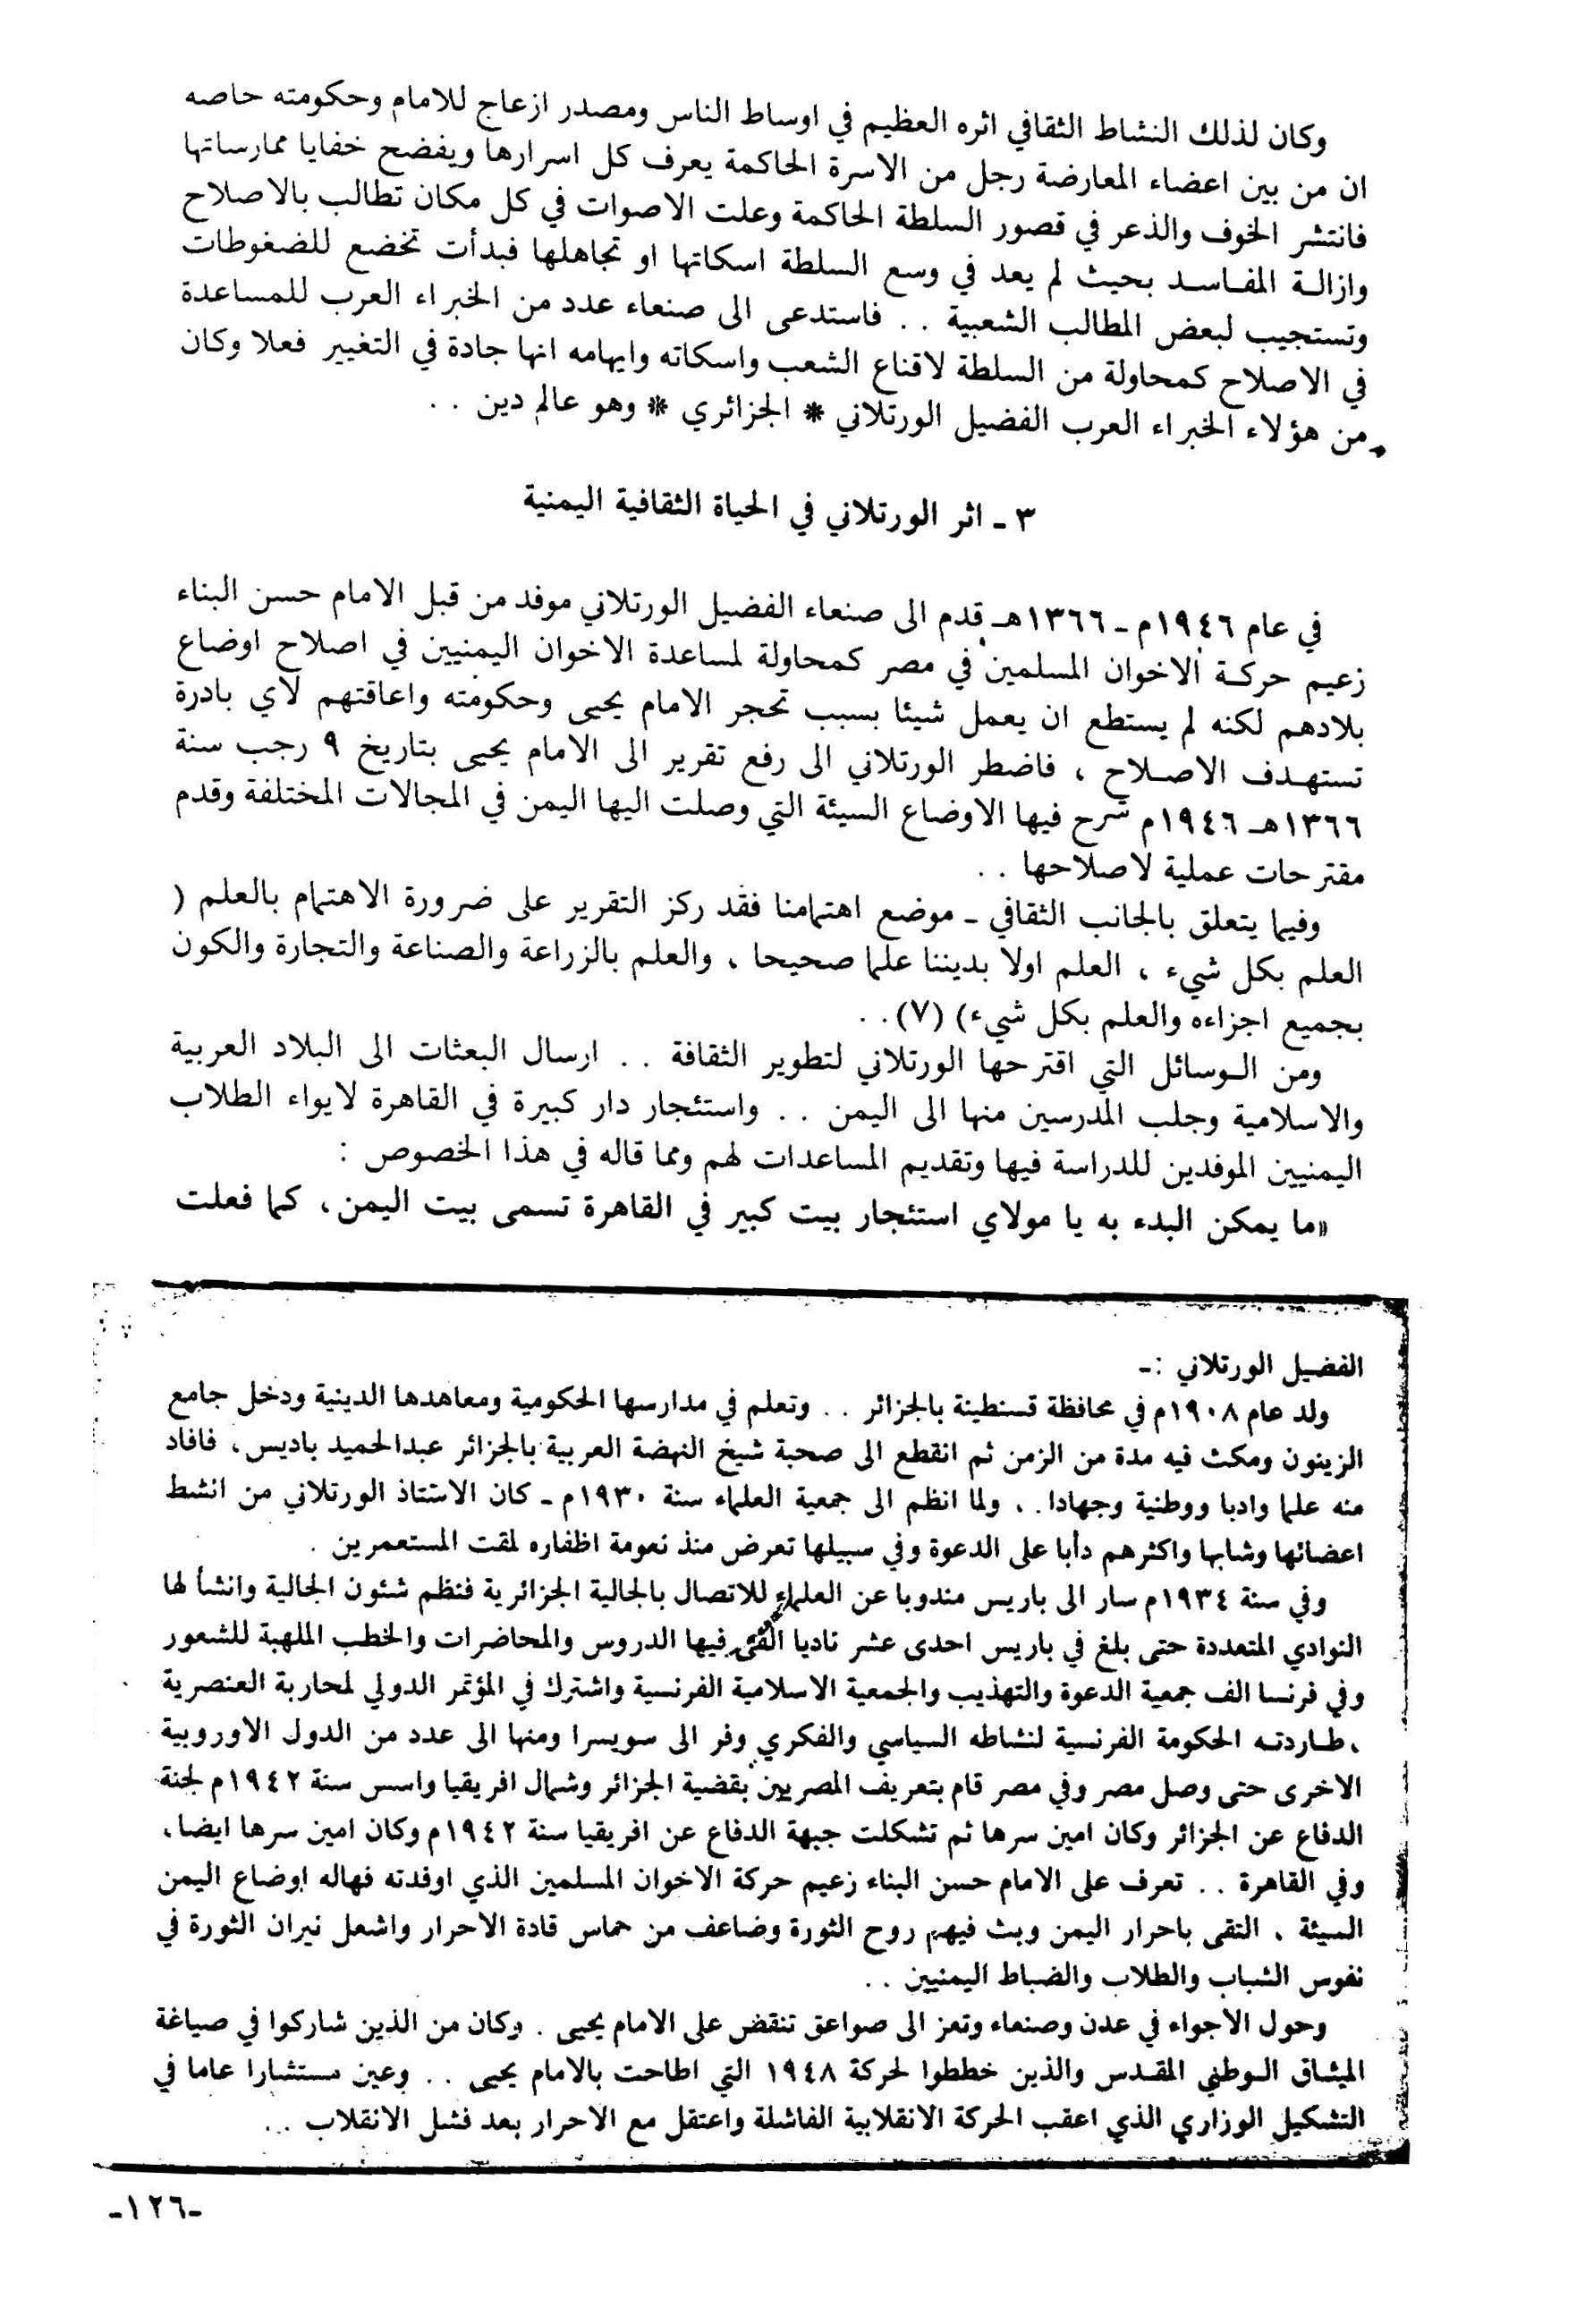 وكان لذلك النشاط الثقافي اثره العظيم في اوساط الناس ومصدر ازعاج للامام وحكومته خاصه
ان من بين اعضاء المعارضة رجل من الاسرة الحاكمة يعرف كل اسرارها ويفضح خفايا ممارساتها
فانتشر الخوف والذعر في قصور السلطة الحاكمة وعلت الاصوات في كل مكان تطالب بالاصلاح
وازالة المفاسد بحيث لم يعد في وسع السلطة اسكاتها او تجاهلها فبدأت تخضع للضغوطات
وتستجيب لبعض المطالب الشعبية .. فاستدعى الى صنعاء عدد من الخبراء العرب للمساعدة
في الاصلاح كمحاولة من السلطة لاقناع الشعب واسكاته وايهامه انها جادة في التغيير فعلا وكان
من هؤلاء الخبراء العرب الفضيل الورتلاني * الجزائري * وهو عالم دين ..
٣ ـ اثر الورتلاني في الحياة الثقافية اليمنية
في عام ١٩٤٦م ـ ١٣٦٦هـ قدم الى صنعاء الفضيل الورتلاني موفد من قبل الامام حسن البناء
زعيم حركة الاخوان المسلمين في مصر كمحاولة لمساعدة الاخوان اليمنيين في اصلاح اوضاع
بلادهم لكنه لم يستطع ان يعمل شيئا بسبب تحجر الامام يحيى وحكومته واعاقتهم لأي بادرة
تستهدف الاصلاح ، فاضطر الورتلاني الى رفع تقرير الى الامام يحيى بتاريخ ٩ رجب سنة
١٣٦٦هـ ١٩٤٦م شرح فيها الاوضاع السيئة التي وصلت اليها اليمن في المجالات المختلفة وقدم
مقترحات عملية لاصلاحها ..
وفيما يتعلق بالجانب الثقافي ـ موضع اهتمامنا فقد ركز التقرير على ضرورة الاهتمام بالعلم (
العلم بكل شيء ، العلم اولا بديننا علما صحيحا ، والعلم بالزراعة والصناعة والتجارة والكون
بجميع اجزاءه والعلم بكل شيء) (٧) ..
ومن الوسائل التي اقترحها الورتلاني لتطوير الثقافة .. ارسال البعثات الى البلاد العربية
والاسلامية وجلب المدرسين منها الى اليمن .. واستئجار دار كبيرة في القاهرة لايواء الطلاب
اليمنيين الموفدين للدراسة فيها وتقديم المساعدات لهم ومما قاله في هذا الخصوص :
«ما يمكن البدء به يا مولاي استئجار بيت كبير في القاهرة تسمى بيت اليمن، كما فعلت
الفضيل الورتلاني :ـ
ولد عام ١٩٠٨م في محافظة قسنطينة بالجزائر .. وتعلم في مدارسها الحكومية ومعاهدها الدينية ودخل جامع
الزيتون ومكث فيه مدة من الزمن ثم انقطع الى صحبة شيخ النهضة العربية بالجزائر عبدالحميد باديس، فافاد
منه علما وادبا ووطنية وجهادا .. ولما انظم الى جمعية العلماء سنة ١٩٣٠م ـ كان الاستاذ الورتلاني من انشط
اعضائها وشابها واكثرهم دأبا على الدعوة وفي سبيلها تعرض منذ نعومة اظفاره لمقت المستعمرين .
وفي سنة ١٩٣٤م سار الى باريس مندوبا عن العلماء للاتصال بالجالية الجزائرية فنظم شئون الجالية وانشأ لها
النوادي المتعددة حتى بلغ في باريس احدى عشر ناديا القى فيها الدروس والمحاضرات والخطب الملهبة للشعور
وفي فرنسا الف جمعية الدعوة والتهذيب والجمعية الاسلامية الفرنسية واشترك في المؤتمر الدولي لمحاربة العنصرية
، طاردته الحكومة الفرنسية لنشاطه السياسي والفكري وفر الى سويسرا ومنها الى عدد من الدول الاوروبية
الاخرى حتى وصل مصر وفي مصر قام بتعريف المصريين بقضية الجزائر وشمال افريقيا واسس سنة ١٩٤٢م لجنة
الدفاع عن الجزائر وكان امين سرها ثم تشكلت جبهة الدفاع عن افريقيا سنة ١٩٤٢م وكان امين سرها ايضا،
وفي القاهرة .. تعرف على الامام حسن البناء زعيم حركة الاخوان المسلمين الذي اوفدته فهاله اوضاع اليمن
السيئة ، التقى باحرار اليمن وبث فيهم روح الثورة وضاعف من حماس قادة الاحرار واشعل نيران الثورة في
نفوس الشباب والطلاب والضباط اليمنيين ..
وحول الاجواء في عدن وصنعاء وتعز الى صواعق تنقض على الامام يحيى . وكان من الذين شاركوا في صياغة
الميثاق الوطني المقدس والذين خططوا لحركة ١٩٤٨ التي اطاحت بالامام يحيى .. وعين مستشارا عاما في
التشكيل الوزاري الذي اعقب الحركة الانقلابية الفاشلة واعتقل مع الاحرار بعد فشل الانقلاب ..
-١٢٦-